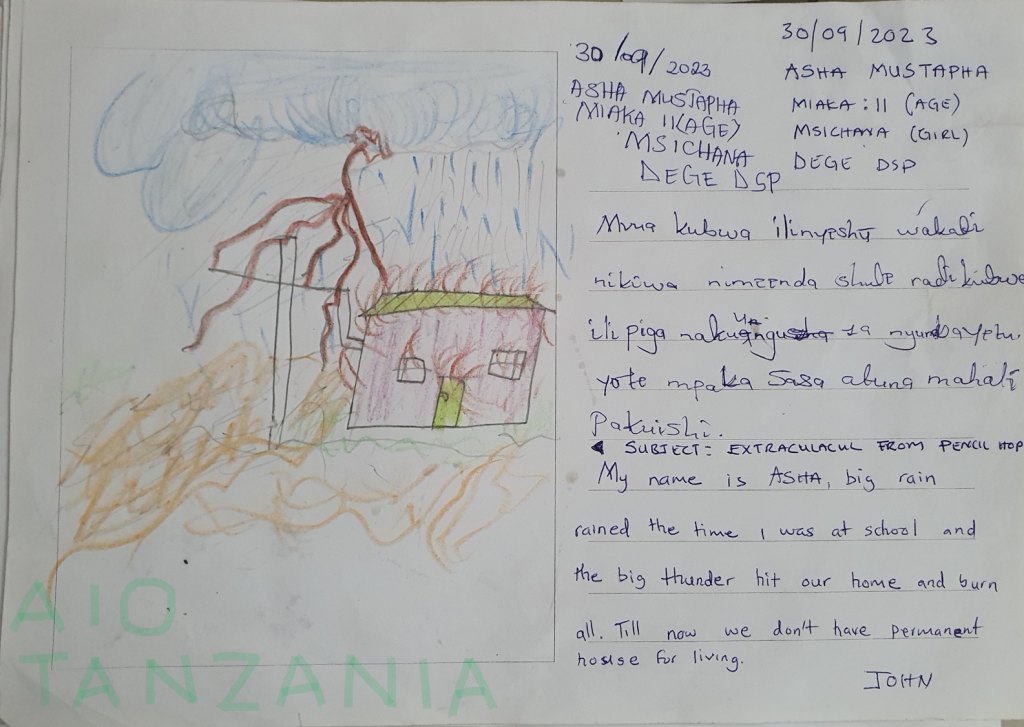 30/09/2023
ASHA MUSTAPHA
MIAKA 11(AGE)
MSICHANA
DEGE DSP
30/09/2023
ASHA MUSTAPHA
MIAKA : 11 (AGE)
MSICHANA (GIRL)
DEGE DSP
Mvua kubwa ilinyeshu wakati
nikiwa nimeenda shule radi kubwa
ilipiga za nyumba yetu.
yote mpaka sasa atuna mahali
Pakuishi.
SUBJECT: EXTRACULACUL FROM PENCIL HOP
My name is ASHA, big rain
rained the time I was at school and
the big thunder hit our home and burn
all. Till now we don't have permanent
house for living.
JOHN
AIO
TANZANIA